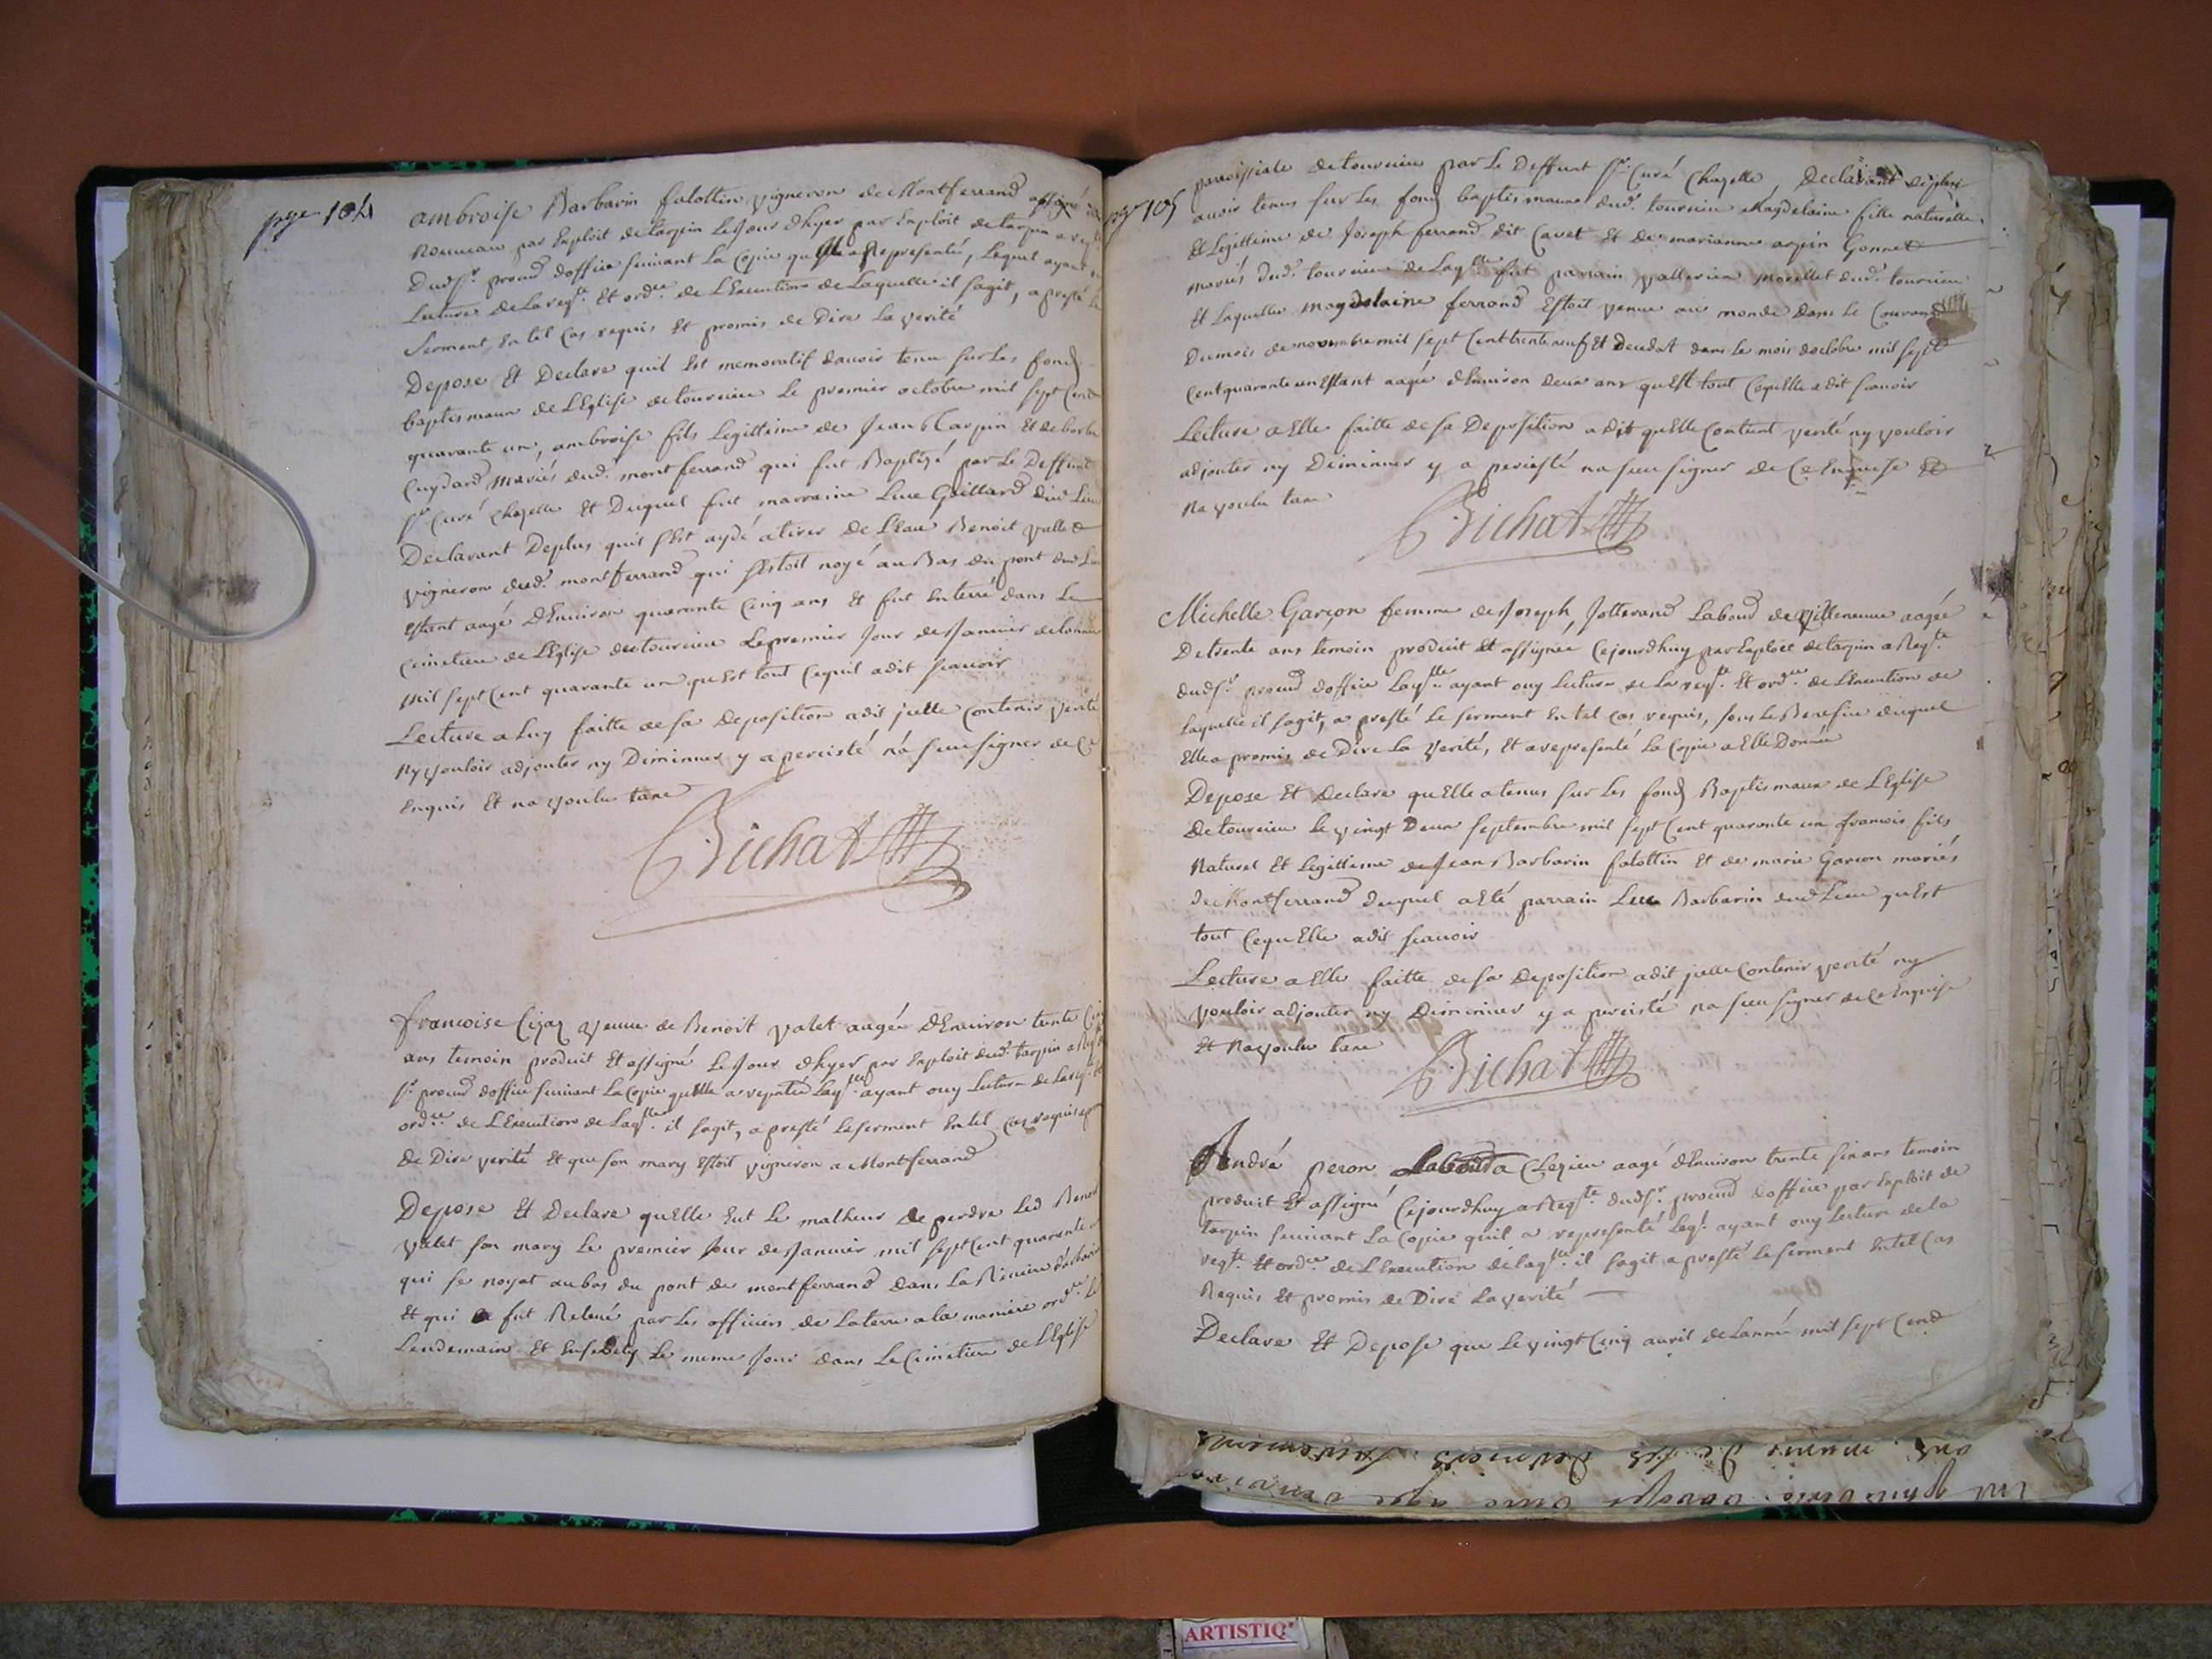 pge 104
ambroise Barbarin falottin vigneron de Montferrand assigné de
Nouveau par Exploit de tarpin le Jour dhyer par Exploit de tarpin a reqte
Dudsr. procud doffice suivant la Copie quIl a Representé, Lequel ayant
Lecture de la reqte. Et ordce. de LExecution de Laquelle il sagit, a presté le
Serment En tel Cas requis Et promis de Dire la verité
Depose Et Declare quil Est memoratif davoir tenu sur les fonds
baptismaux de LEglise de tourcieu le premier octobre mil sept Cent
quarante un, ambroise fils Legittime de Jean Tarpin Et de
Cuydard Mariés dud. montferrand qui fut Baptizé par Le Deffunt
sr Curé Chazelle Et Duquel fut marraine Luce Gaillard dud Lieu
Declarant Deplus quil sEst aydé a tirer de LEau Benoit vallet
vigneron dud. montferrand qui sEstoit noyé au Bas du pont dud Lieu
Estant aagé dEnviron quarante Cinq ans Et fut Enterré dans Le
Cimetiere de LEglise de tourcieu Le premier Jour de Janvier de lannée
Mil sept Cent quarante un quEst tout Cequil a dit scavoir
Lecture a Luy faitte de sa Deposition a dit jcelle Contenir verité
Ny vouloir adjouter ny Diminuer y a percisté na sceu signer de Ce
Enquis Et na voulu taxe
Bichat
francoise veuve de Benoit valet aagée dEnviron trente
ans temoin produit Et assigné Le Jour dhyer par Exploit dud. tarpin a
sr. procud doffice suivant la Copie quElle a Laqlle. ayant ouy lecture de la reqte
ordce. de LExecution de Laqlle. il sagit, a presté le serment En tel Cas requis
de Dire verité Et que son mary Estoit vigneron a Montferrand
Depose Et Declare quElle Eut Le malheur de perdre Led Benoit
valet son mary le premier Jour de Janvier mil sept Cent quarante
qui se noyat au bas du pont de montferrand dans la Riviere
Et qui fut Relevé par les officiers de la terre a la maniere ordre. Le
Lendemain Et Ensevely Le meme Jour dans Le Cimetiere de LEglise
pge 105
parroissiale de tourcieu par le Deffunt sr. Curé Chazelle Declarant deplus
avoir tenus sur les fonds baptismaux dud. tourcieu Magdelaine fille naturelle
Et Legittime de Joseph ferrand dit Cavet Et de marianne arpin Gonnet
mariés dud. tourcieu de Laqlle fut parrain vallerien morellet dud. tourcieu
Et Laquelle magdelaine ferrand Estoit venue au monde dans le Courant
Du mois de novembre mil sept Cent trente neuf Et Deudat dans le mois doctobre mil sept
Cent quarante un Estant aagée dEnviron deux ans quEst tout CequElle a dit scavoir
Lecture a Elle faitte de sa Deposition a dit quElle Contient verité ny vouloir
adjouter ny Diminuer y a percisté na sceu signer de Ce Enquise Et
Na voulu taxe
Bichat
Michelle Garcon femme de Joseph Jotterand Laboud de Villeneuve aagée
De trente ans temoin produit Et assignée Cejourdhuy par Exploit de tarpin a Reqte.
dudsr. procud doffice Laqlle ayant ouy lecture de la reqte. Et ordce. de LExecution de
laquelle il sagit, a presté le serment En tel Cas requis, sous le Benefice duquel
Elle a promis de Dire La verité, Et a representé la Copie a Elle Donnée
Depose Et Declare quElle a tenus sur les fonds Baptismaux de LEglise
De tourcieu le vingt Deux septembre mil sept Cent quarante un francois fils
Naturel Et Legittime de Jean Barbarin falottin Et de marie Garcon mariés
de Montferrand duquel a Eté parrain Luc Barbarin dud Lieu quEst
tout CequElle a dit scavoir
Lecture a Elle faitte de sa Deposition a dit jcelle Contenir verité ny
vouloir adjouter ny Diminuer y a percisté na sceu signer de Ce Enquise
Et Na voulu taxe
Bichat
André peron Laboud a Clezieu aagé dEnviron trente six ans temoin
produit Et assigné Cejourdhuy a Reqte. dudsr. procud doffice par Exploit de
tarpin suivant La Copie quil a representé Leql. ayant ouy Lecture de la
reqte. Et ordce de LExecution de laqlle. il sagit a presté le serment En tel Cas
Requis Et promis de Dire la verité
Declare Et Depose que le vingt Cinq avril de Lannée mil sept Cend
ARTISTIQ